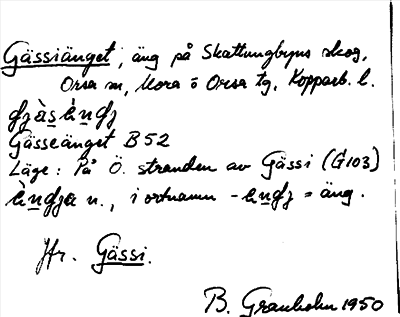 Gässiänget, äng på Skattungbyns skog,
Orsa sn, Mora o Orsa tg, Kopparb. l.
Gässeänget B 52
Läge: På Ö. stranden av Gässi (G103)
n., i ortnamn - = äng.
Jfr. Gässi.
B. Granholm 1950